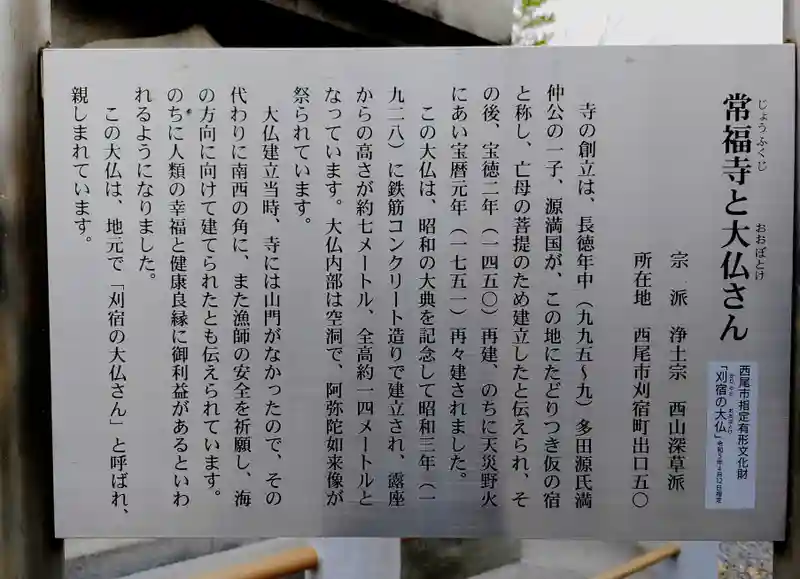 常福寺と大仏さん
じょうふくじ
おおぼとけ
西尾市指定有形文化財
「刈宿の大仏」
宗 派 浄土宗 西山深草派
所在地 西尾市刈宿町出口五〇
寺の創立は、長徳年中（九九五～九）多田源氏満
仲公の一子、源満国が、この地にたどりつき仮の宿
と称し、亡母の菩提のため建立したと伝えられ、そ
の後、宝徳二年（一四五〇）再建、のちに天災野火
にあい宝暦元年（一七五一）再々建されました。
この大仏は、昭和の大典を記念して昭和三年（一
九二八）に鉄筋コンクリート造りで建立され、露座
からの高さが約七メートル、全高約一四メートルと
なっています。大仏内部は空洞で、阿弥陀如来像が
祭られています。
大仏建立当時、寺には山門がなかったので、その
代わりに南西の角に、また漁師の安全を祈願し、海
の方向に向けて建てられたとも伝えられています。
のちに人類の幸福と健康良縁に御利益があるといわ
れるようになりました。
この大仏は、地元で「刈宿の大仏さん」と呼ばれ、
親しまれています。